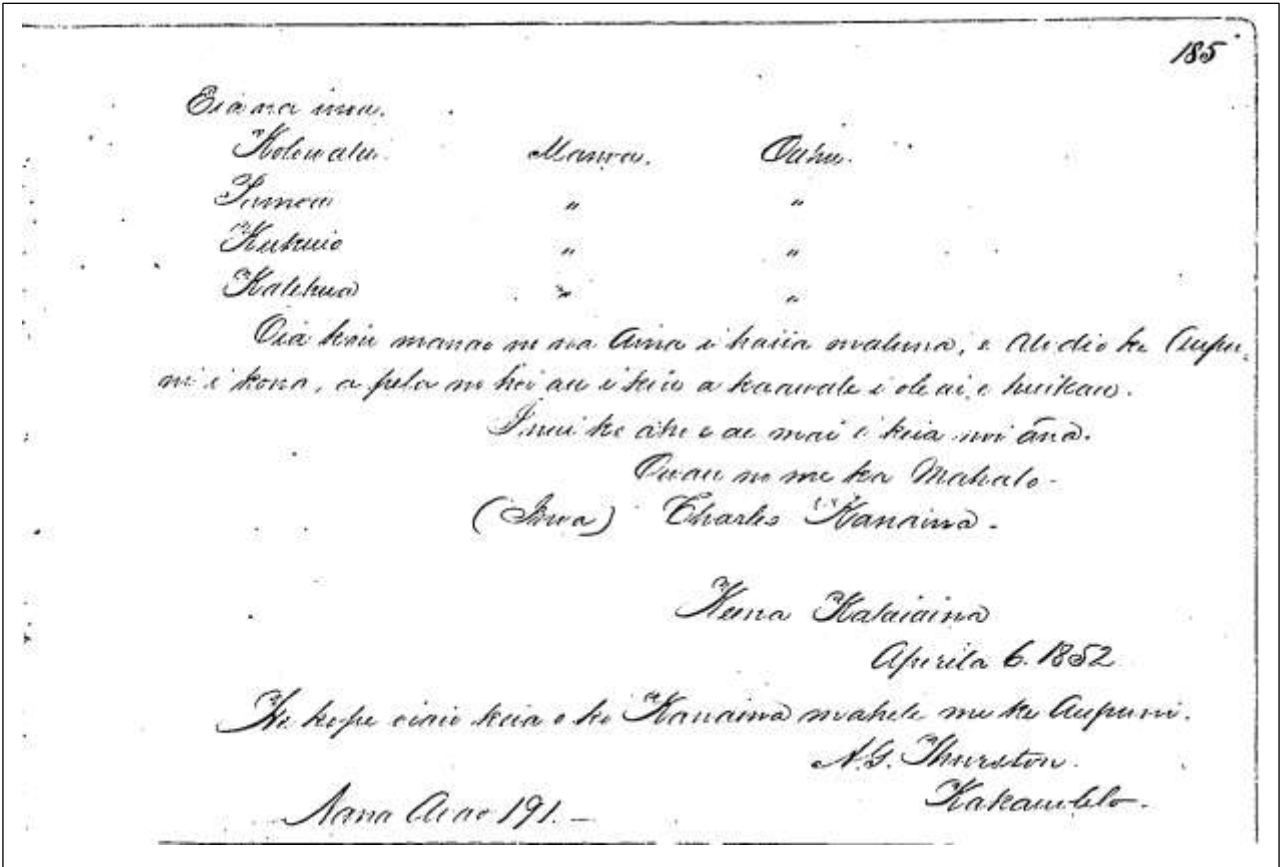 185
Eia na inoa.
Kolowalu. Manoa. Oahu.
Pamoa " "
Kukuio " "
Kalehua " "
Oia kou manao no na Aina i haiia maluna, e Alodio ke Aupu-
ni i kona, a pela no hoi au i keia a kaawale i ole ai, e huikau.
I nui ke aho e ae mai i keia noi ana.
Owau no me ka Mahalo.
(Inoa) Charles Kanaina.
Keena Kalaiaina
Aperila 6. 1852
He kope oiaio keia o ko Kanaina mahele me ke Aupuni.
A. G. Thurston.
Kakauolelo.
Nana Aoao 191. –